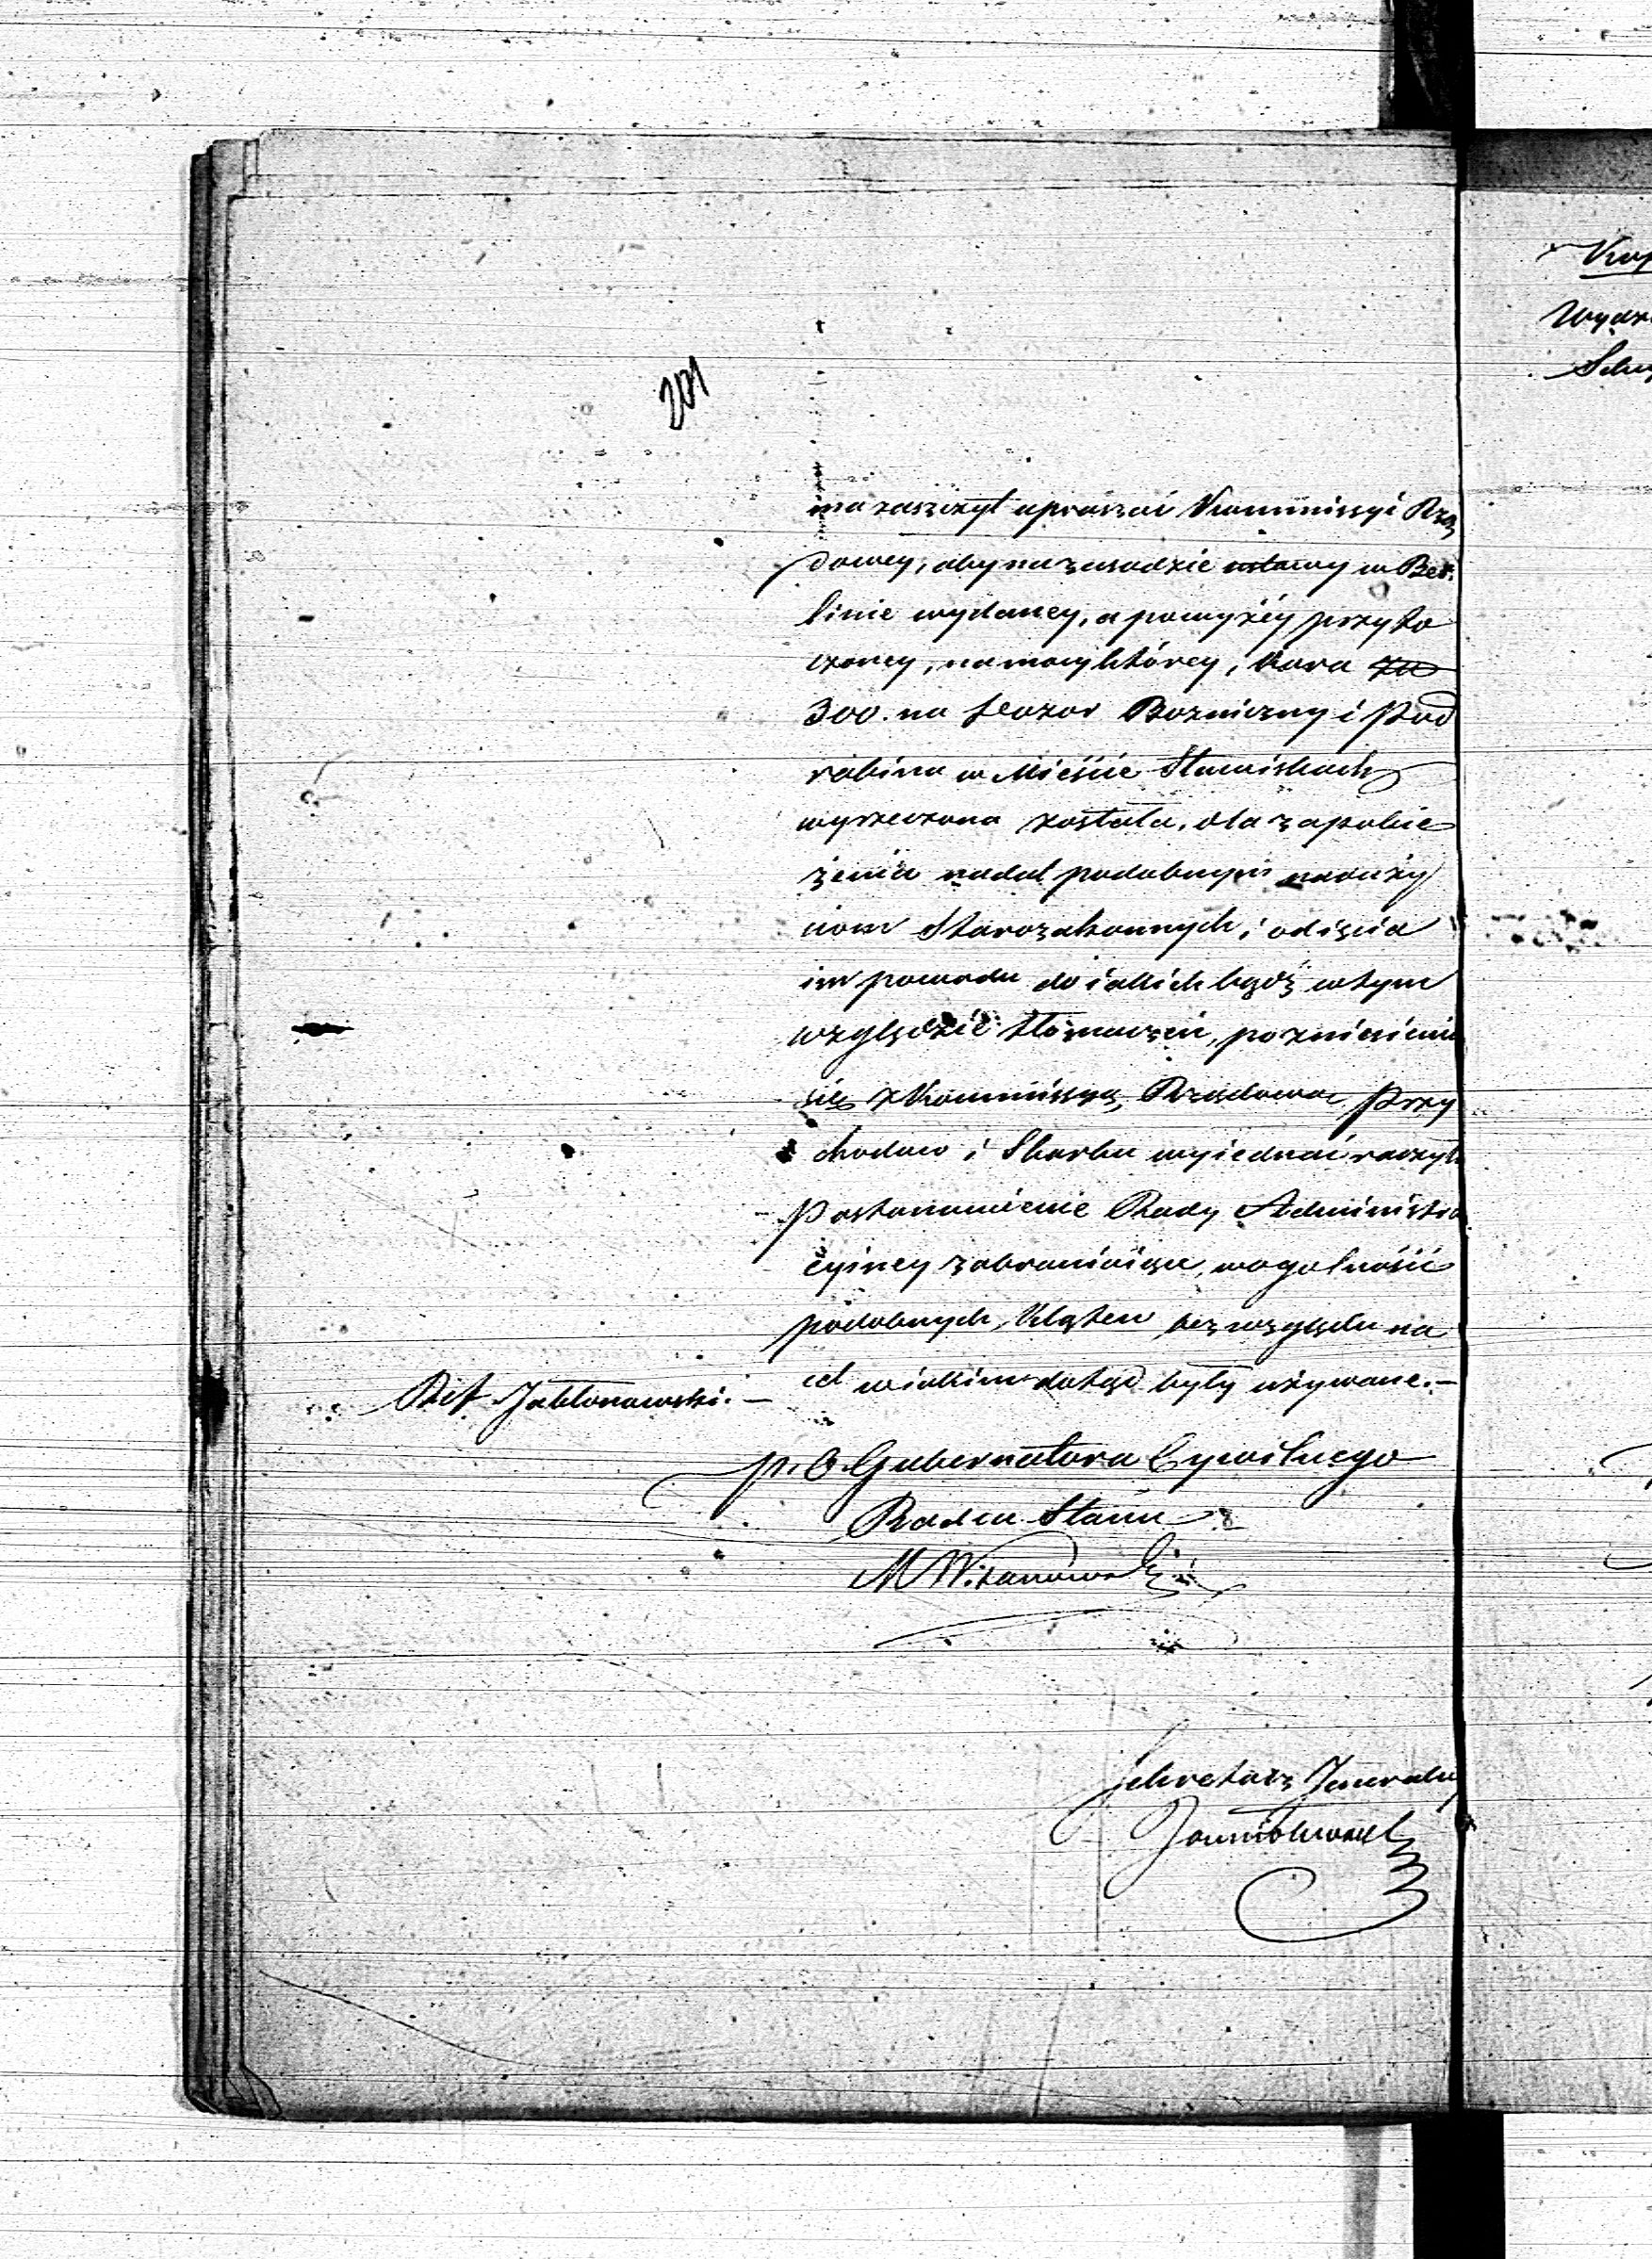 201
ma zaszczyt upraszać Kommissyi Rzą
dowey, aby na zasadzie ustawy w Ber
linie wydaney, a powyżéy przyto
czoney, na mocy którey, kara zło
300. na Dozor Bozniczny i Pod
rabina w Mieście Stawiskach
wyrzeczona została, dla zapobie
żenia nadal podobnym
Starozakonnych, i odięcia
im powodu do iakich bądź w tym
względzie tłomaczeń, po zniesieniu
się z Kommissyą Rządową Przy
chodow i Skarbu wyiednać raczyła
Postanowienie Rady Administra
cyiney zabraniaiące, w ogolności
podobnych Klątew bez względu na
cel w iakim dotąd były używane.—
Ref. Jabłonowski.—
p. O Gubernatora Cywilnego
Radca Stanu
Sekretarz Jeneralny